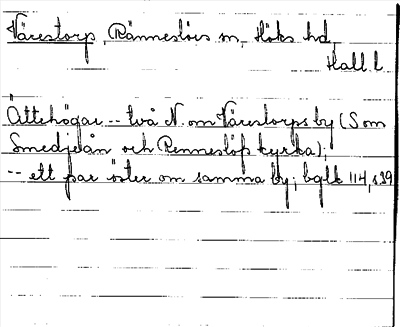 Vårestorp, Ränneslövs sn, Höks hd,
Hall. l.
Ättehögar -- två N. om Vårestorps by (S om
Smedjeån och Renneslöfs kyrka);
-- ett par öster om samma by; bglt 114, s.39